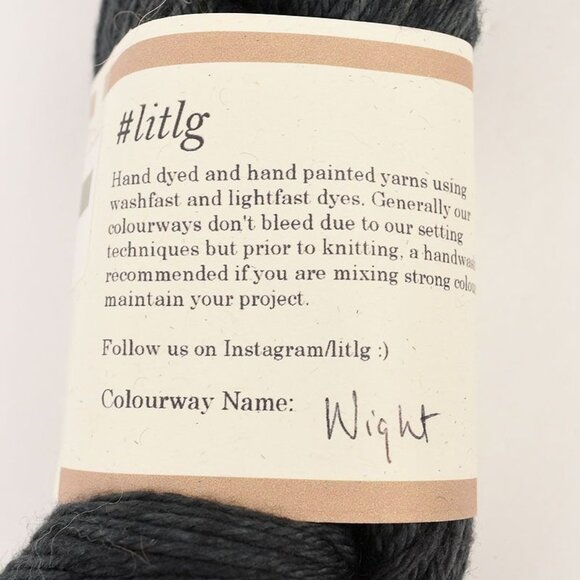 #litlg
Hand dyed and hand painted yarns using
washfast and lightfast dyes. Generally our
colourways don't bleed due to our setting
techniques but prior to knitting, a
recommended if you are mixing strong
maintain your project.
Follow us on Instagram/litlg :)
Colourway Name: Wight